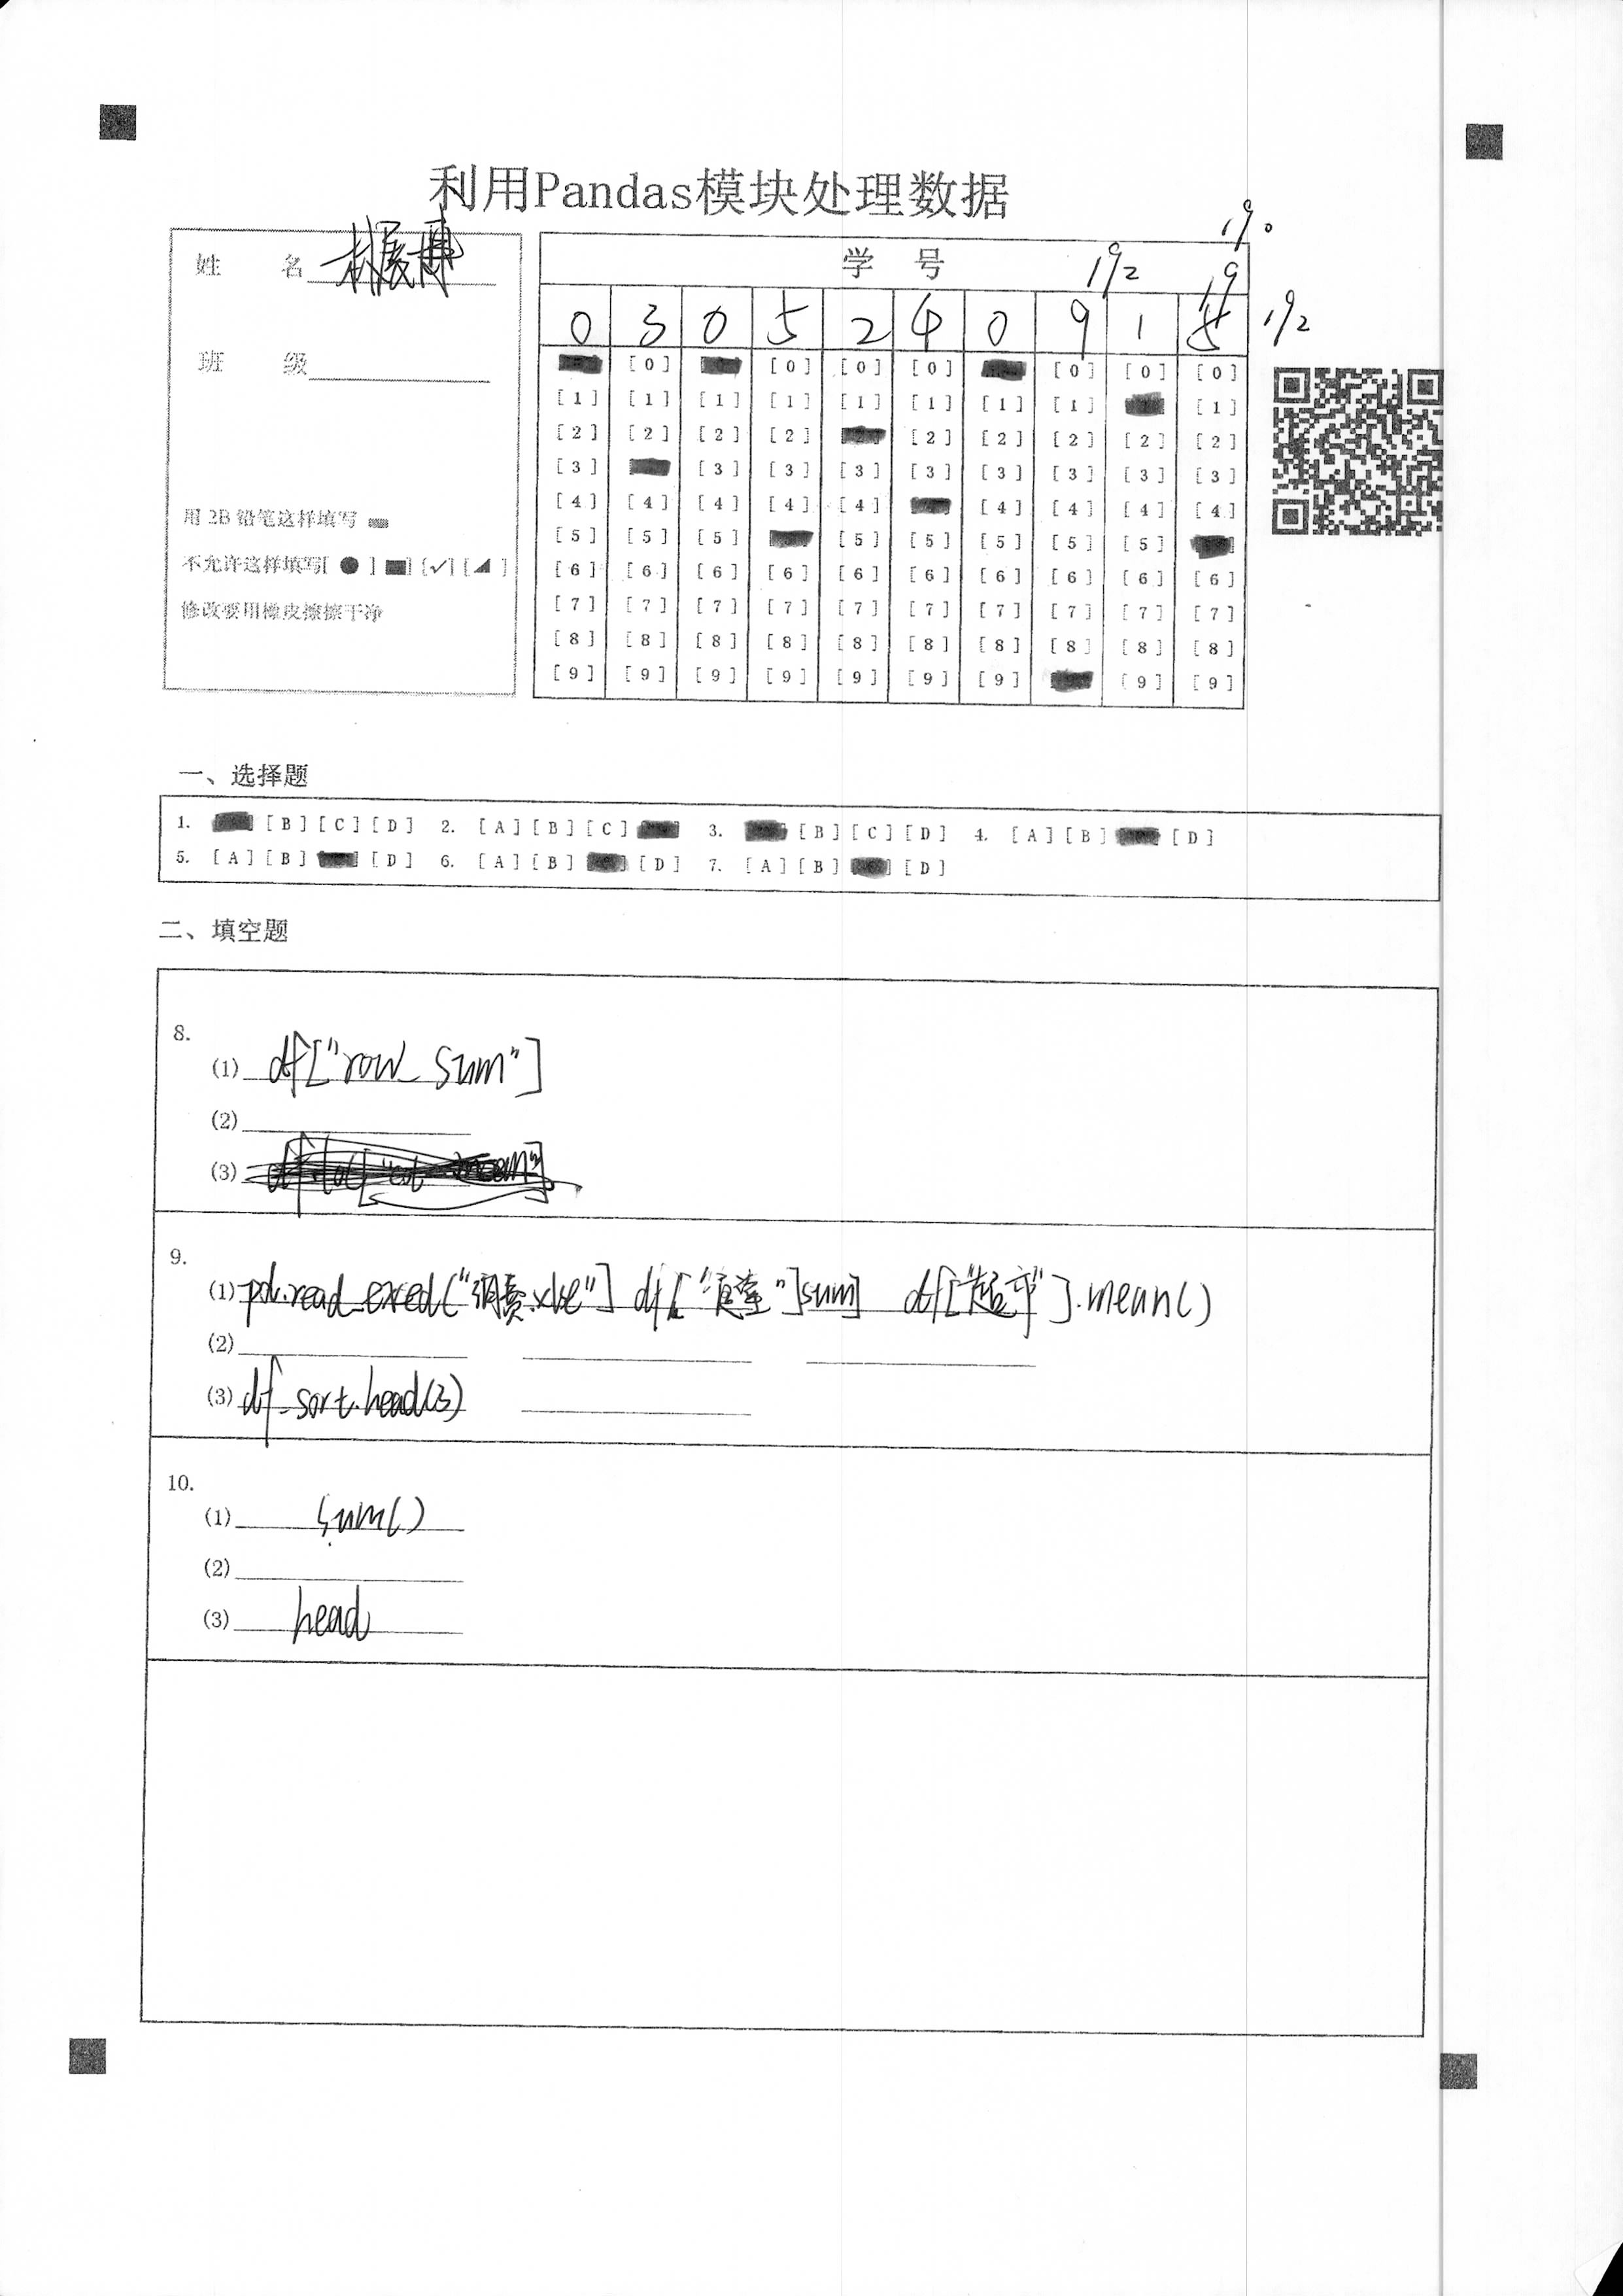 利用Pandas模块处理数据
姓 名 展博
班 级
用 2B 铅笔这样填写
不允许这样填写[ ● ] [■] [✓] [◢ ]
修改要用橡皮擦擦干净
学 号
0 3 0 5 2 4 0 9 1 5
[0] [0] [0] [0] [0] [0] [0]
[1] [1] [1] [1] [1] [1] [1] [1] [1]
[2] [2] [2] [2] [2] [2] [2] [2] [2]
[3] [3] [3] [3] [3] [3] [3] [3] [3]
[4] [4] [4] [4] [4] [4] [4] [4] [4]
[5] [5] [5] [5] [5] [5] [5] [5]
[6] [6] [6] [6] [6] [6] [6] [6] [6] [6]
[7] [7] [7] [7] [7] [7] [7] [7] [7] [7]
[8] [8] [8] [8] [8] [8] [8] [8] [8] [8]
[9] [9] [9] [9] [9] [9] [9] [9] [9]
一、选择题
1. [B] [C] [D] 2. [A] [B] [C] 3. [B] [C] [D] 4. [A] [B] [D]
5. [A] [B] [D] 6. [A] [B] [D] 7. [A] [B] [D]
二、填空题
8.
(1) df["row_sum"]
(2)
(3)
9.
(1) pd.read_excel("消费.xlse"] df["食堂"]sum] df["超市"].mean()
(2)
(3) df_sort.head(3)
10.
(1) sum()
(2)
(3) head